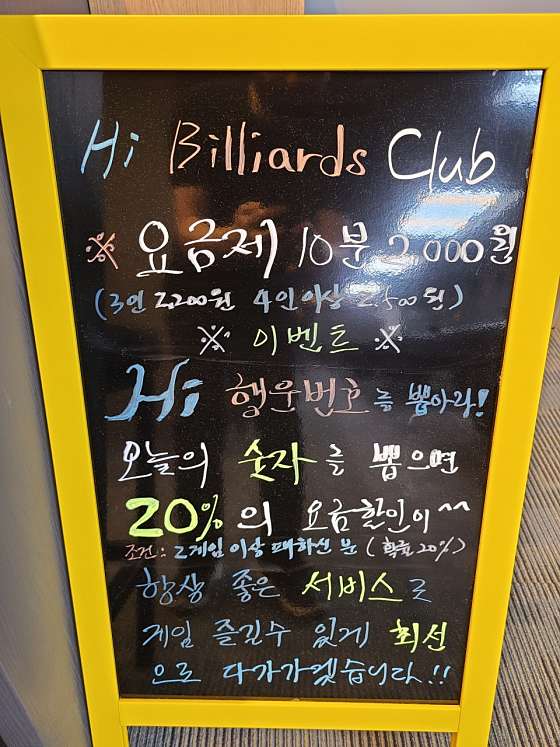 Hi Billiards Club
※ 요금제 10분 2,000원
(3인 2,200원 4인이상 2,500원)
※ 이벤트 ※
Hi 행운번호를 뽑아라!
오늘의 숫자를 뽑으면
20%의 요금할인이 ^^
조건: 2게임 이상 패하신 분 (확률 20%)
항상 좋은 서비스로
게임 즐길수 있게 최선
으로 다가가겠습니다.!!